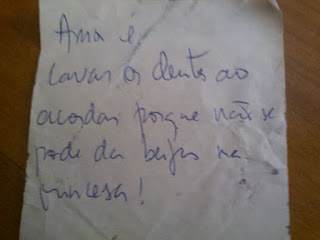 Amor é
lavar os dentes ao
acordar porque não se
pode dar beijos na
princesa!